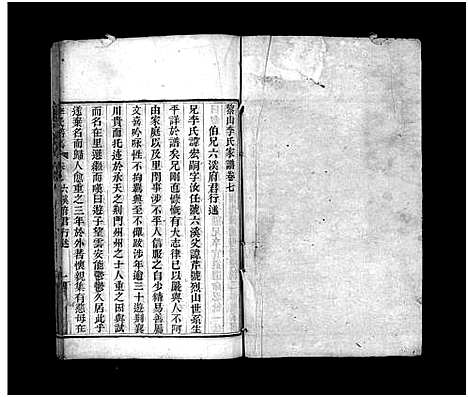 黎山李氏家譜卷七
伯兄六溪府君行述
兄李氏諱宏嗣字汝任號六溪父諱芹號烈山世系生
平詳於譜矣兄剛直慷慨有大志律已以嚴與人不阿
由家庭以及里閈事涉不平人信服之自少精易善屬
文喜吟詠然不拘羈與至不憚跋涉年逾三十遊到襄
川貴而托迹於承天之荆門州州之士人重之因與試
而名在里選繼而嘆曰遊子望雲安能鬱鬱久居此乎
遂棄名而歸人愈重之三年於外著懷親集有慈母在
六溪府君行述